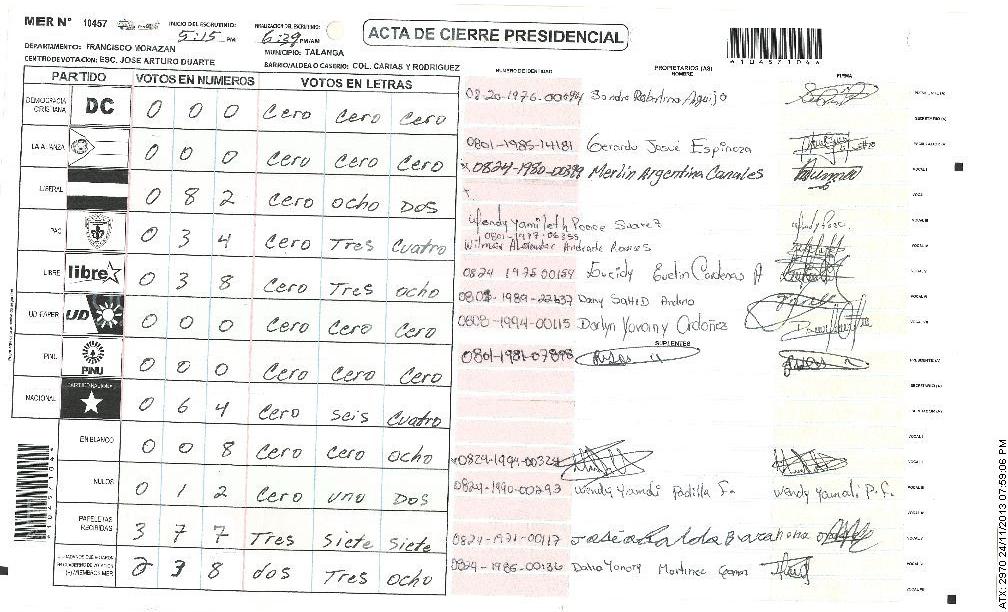 MER N° 10457 INICIO DEL ESCRUTINIO: 5:15 PM FINALIZACION DEL ESCRUTINIO: 6:39 PM/AM
ACTA DE CIERRE PRESIDENCIAL
DEPARTAMENTO: FRANCISCO MORAZAN MUNICIPIO: TALANGA
CENTRO DE VOTACION: ESC. JOSE ARTURO DUARTE BARRIO/ALDEA O CASERIO: COL. CARIAS Y RODRIGUEZ
PARTIDO VOTOS EN NUMEROS VOTOS EN LETRAS
DEMOCRACIA CRISTIANA DC 0 0 0 Cero Cero Cero
LA ALIANZA 0 0 0 Cero Cero Cero
LIBERAL 0 8 2 Cero ocho Dos
PAC 0 3 4 Cero Tres Cuatro
LIBRE libre 0 3 8 Cero Tres ocho
UD-FAPER UD 0 0 0 Cero Cero Cero
PINU PINU 0 0 0 Cero Cero Cero
NACIONAL 0 6 4 Cero seis Cuatro
EN BLANCO 0 0 8 Cero Cero ocho
NULOS 0 1 2 Cero uno Dos
PAPELETAS RECIBIDAS 3 7 7 Tres Siete Siete
2 3 8 dos Tres ocho
NUMERO DE IDENTIDAD PROPIETARIOS (AS) NOMBRE FIRMA
0801-1985-14181 Gerardo Josué Espinoza
0824-1980-00399 Merlin Argentina Canales
Wendy Yamileth Ponce Suarez
Wilmer Alexander Andrade
0824 1975 00154 Eucidy Evelin Cardenas A
1989-22637 Dany SaHID Andino
0808-1994-00115 Darlyn Yovany Ordoñez
SUPLENTES
0801-1981-07898
0824-1994-00324
0824-1990-00293 Wendy Yamali Padilla F. Wendy Yamali P.F.
0824-1971-00117 Barahona
0824-1986-00136 Martinez
ATX: 2970 24/11/2013 07:59:06 PM